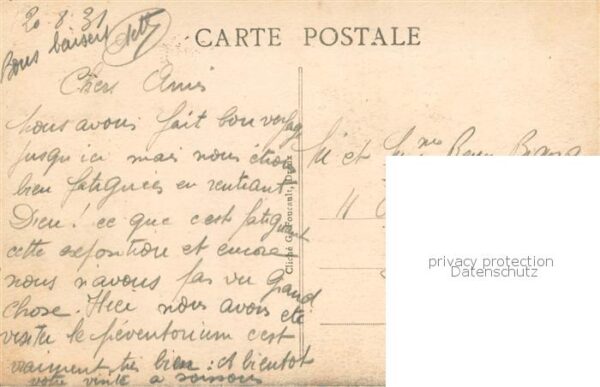 20.8.31
Bons baisers
CARTE POSTALE
Chers Amis
nous avons fait bon voyage
jusqu'ici mais nous étions
bien fatiguées en rentrant
Dieu! ce que c'est fatiguant
cette exposition et encore
nous n'avons pas vu grand
chose. Hier nous avons été
visiter le préventorium c'est
vraiment très bien : à bientôt
votre visite à soissons
Cliché G. Foucault,
M et Mme
11
privacy protection
Datenschutz